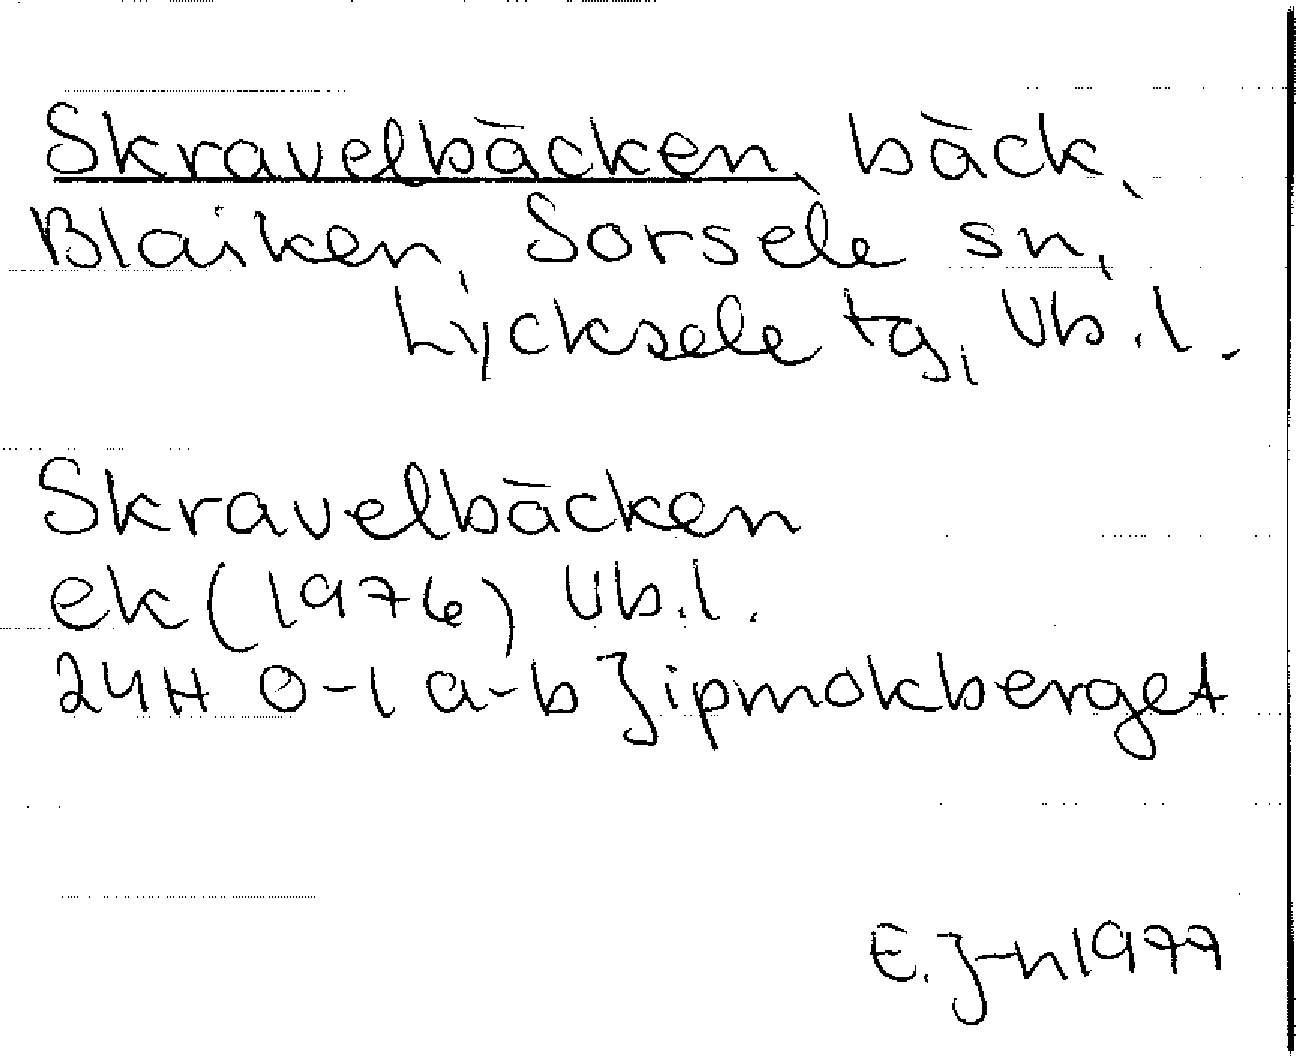 Skravelbäcken, bäck,
Blaiken, Sorsele sn,
Lycksele tg, Vb.l.
Skravelbäcken
ek (1976) Vb.l.
24H 0-1 a-b Jipmokberget
E. J-n 1977